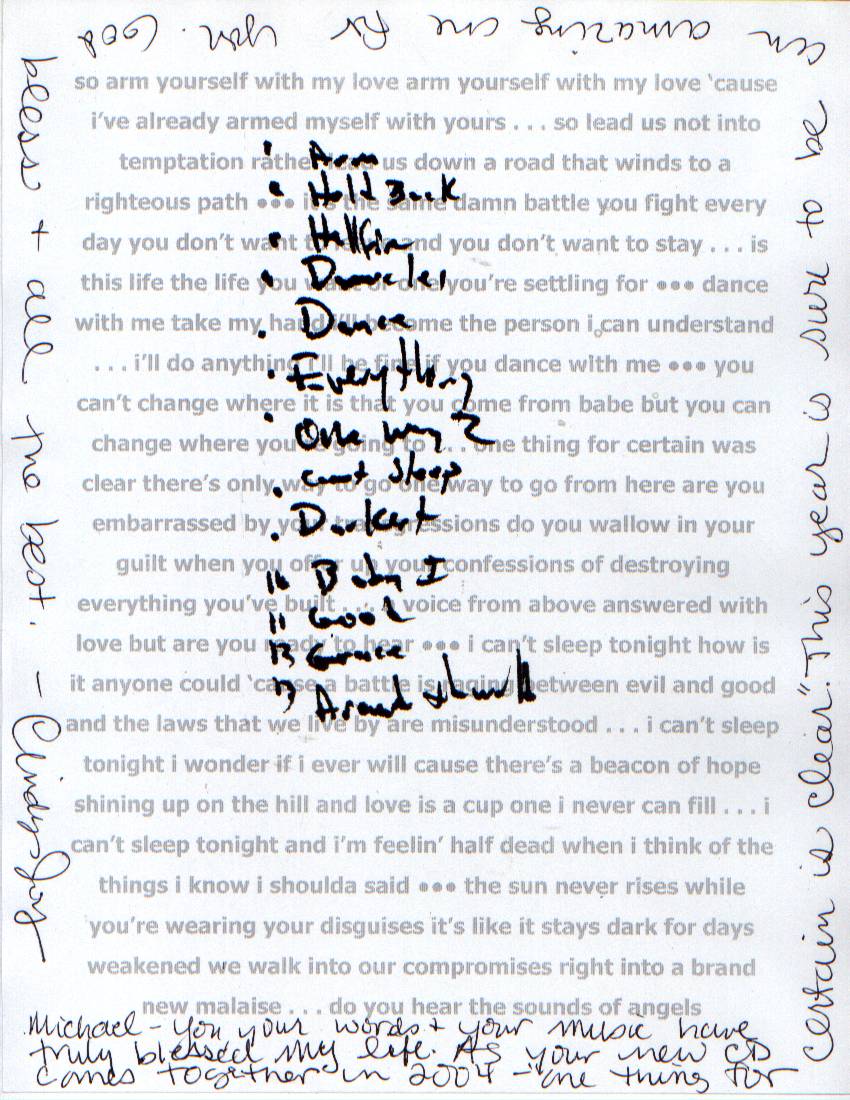 so arm yourself with my love arm yourself with my love ‘cause
i’ve already armed myself with yours . . . so lead us not into
temptation rathe us down a road that winds to a
righteous path ••• the same damn battle you fight every
day you don’t want t and you don’t want to stay . . . is
this life the life you you’re settling for ••• dance
with me take my hand i’ll become the person i can understand
. . . i’ll do anything i’ll be fine if you dance with me ••• you
can’t change where it is that you come from babe but you can
change where you going to . . . one thing for certain was
clear there’s only way to go one way to go from here are you
embarrassed by your transgressions do you wallow in your
guilt when you offer up your confessions of destroying
everything you’ve built . . . A voice from above answered with
love but are you ready to hear ••• i can’t sleep tonight how is
it anyone could ‘cause a battle is raging between evil and good
and the laws that we live by are misunderstood . . . i can’t sleep
tonight i wonder if i ever will cause there’s a beacon of hope
shining up on the hill and love is a cup one i never can fill . . . i
can’t sleep tonight and i’m feelin’ half dead when i think of the
things i know i shoulda said ••• the sun never rises while
you’re wearing your disguises it’s like it stays dark for days
weakened we walk into our compromises right into a brand
new malaise . . . do you hear the sounds of angels
Arm
Hold Back
Dance
Everything
One way 2
cant sleep
Darkest
Baby I
11 Good
Grace
Michael - You your words + your music have
truly blessed my life. As your new CD
comes together in 2004 - "one thing for
certain is clear". This year is sure to be
an amazing one for you. God
bless + all the best. - Cindy Joy